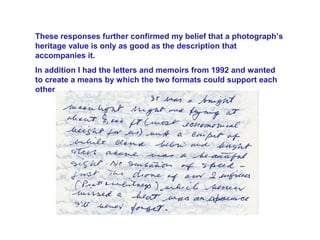 These responses further confirmed my belief that a photograph's
heritage value is only as good as the description that
accompanies it.
In addition I had the letters and memoirs from 1992 and wanted
to create a means by which the two formats could support each
other
It was a bright
moonlight night and flying at
about ft (most economical
height for us) with a carpet of
white cloud below and bright
stars above was a beautiful
sight. No sensation of speed –
just the drone of our 2 engines
(Pratt & Whitneys) which never
missed a beat was an experience
I'll never forget.